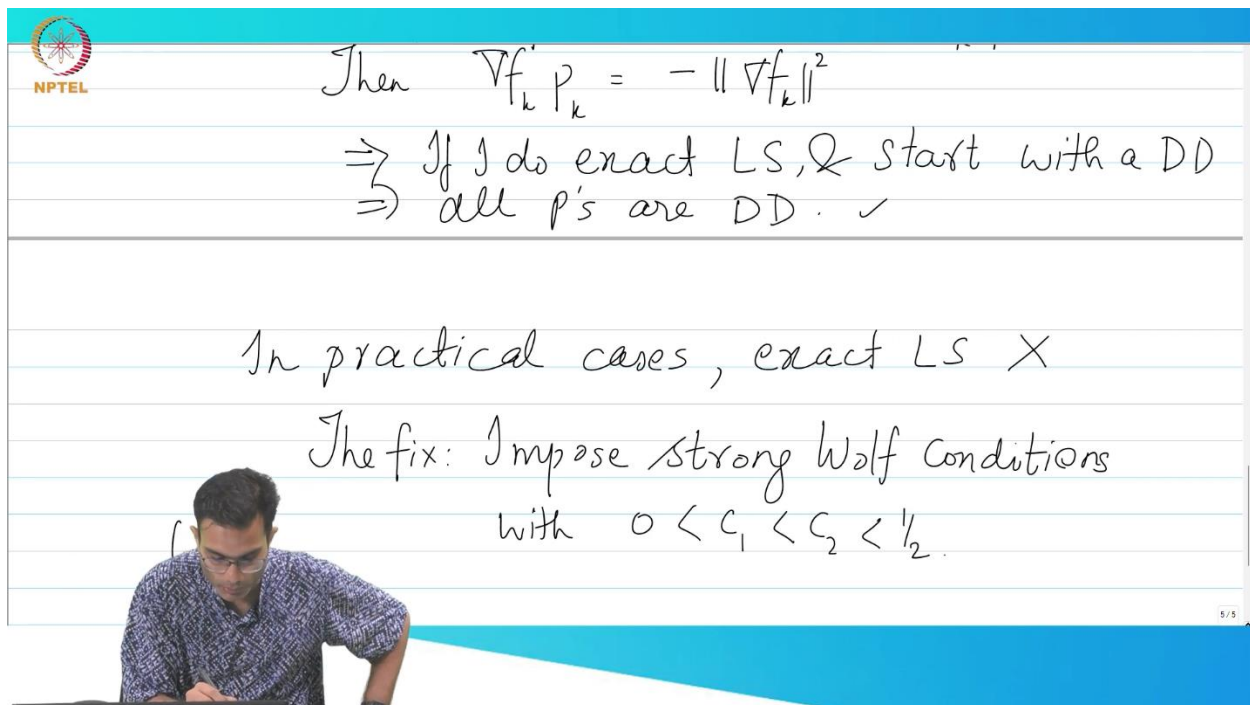 NPTEL
Then ∇fₖᵀ pₖ = - ‖∇fₖ‖²
⇒ If I do exact LS, & start with a DD
⇒ all p's are DD. ✓
In practical cases, exact LS X
The fix: Impose strong Wolf Conditions
with 0 < C₁ < C₂ < 1/2.
5/5